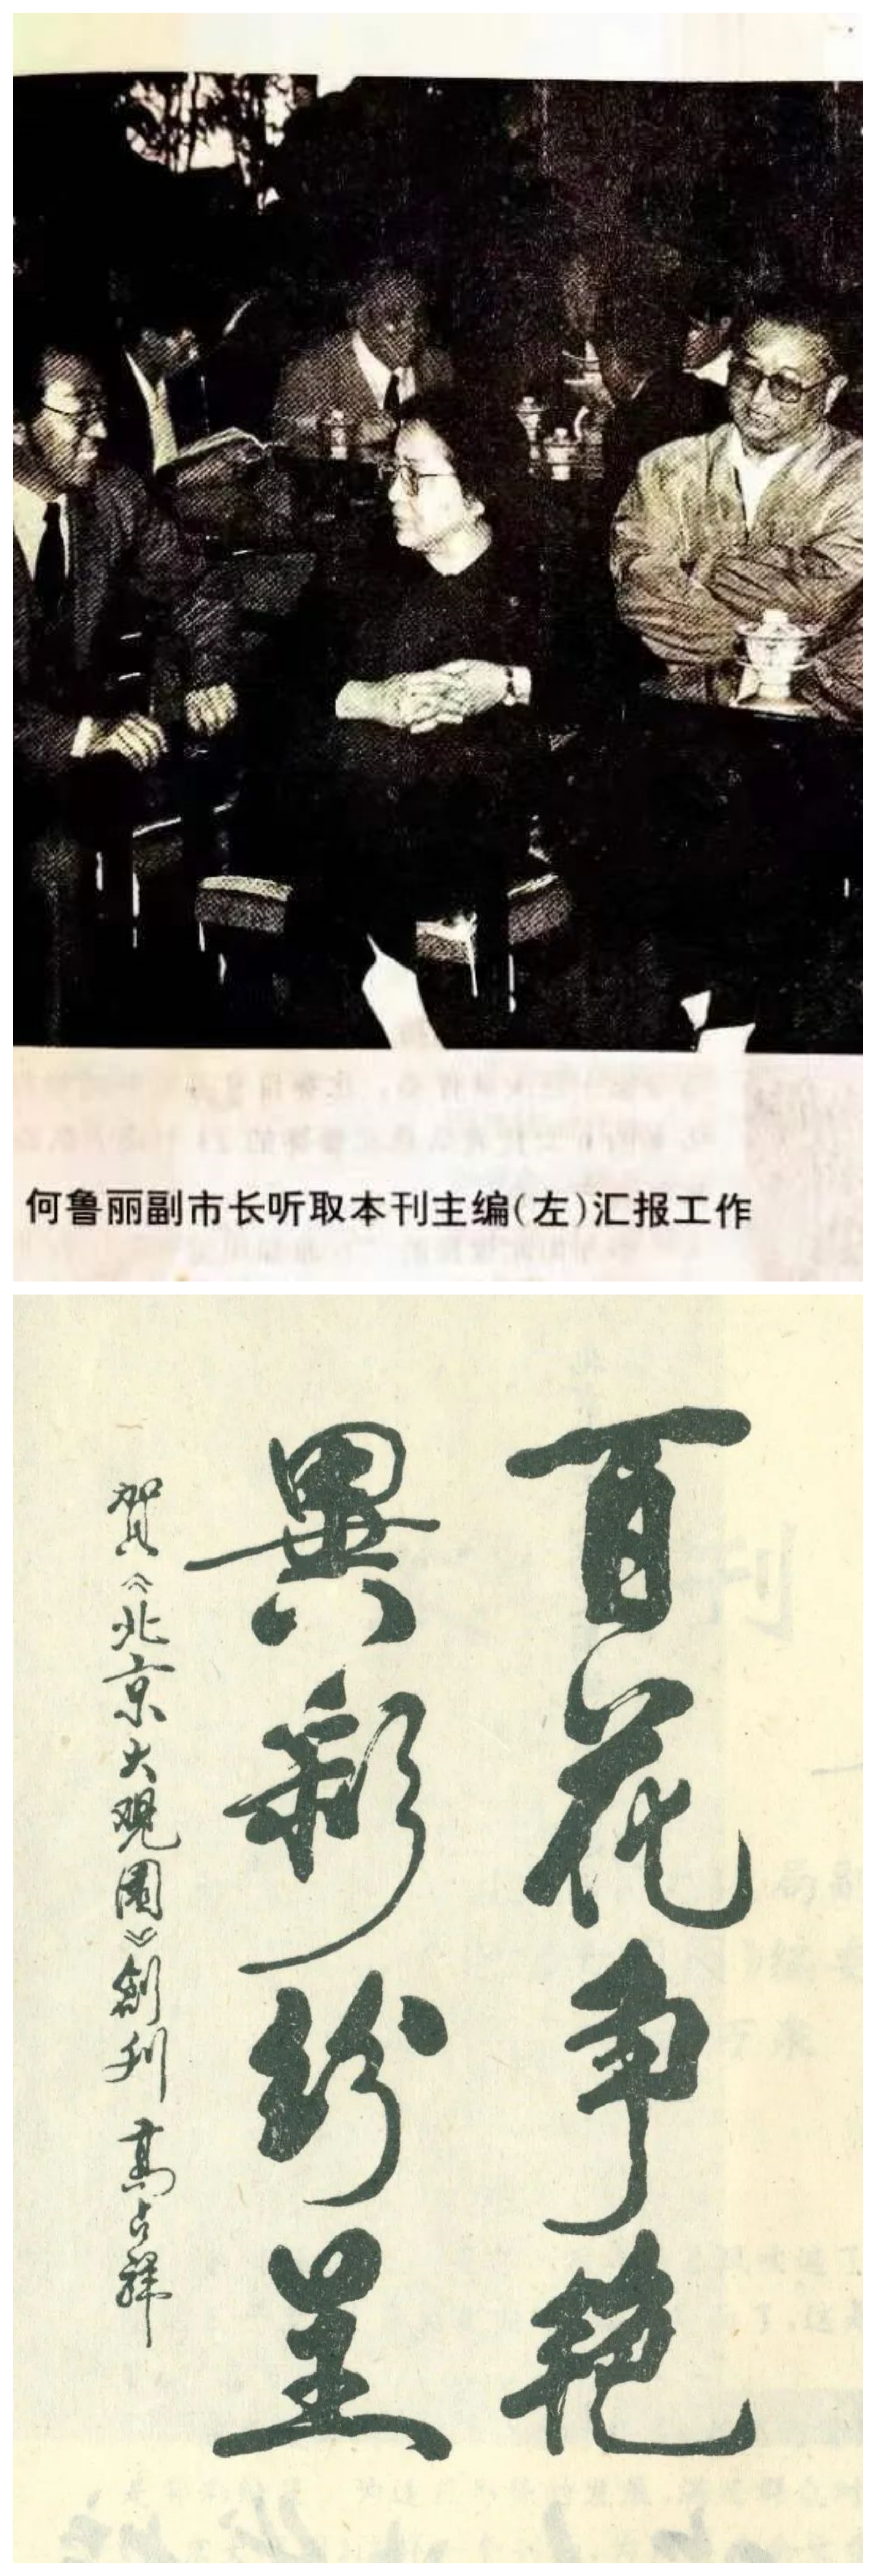 何鲁丽副市长听取本刊主编(左)汇报工作
百花争艳
異彩紛呈
賀《北京大观園》創刊 高占祥